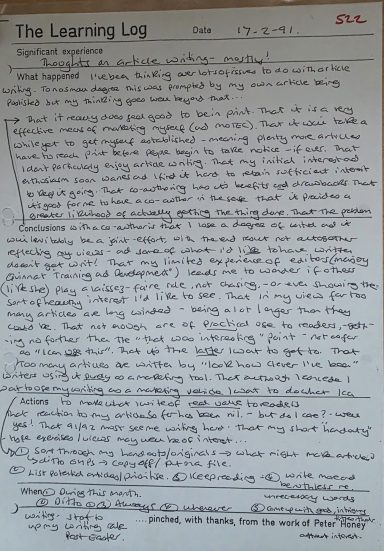 522
The Learning Log Date 17-2-91.
Significant experience
Thoughts on article writing - mostly!
What happened I've been thinking over lots of issues to do with article
writing. To no small degree this was prompted by my own article being
published but my thinking goes well beyond that...
That it really does feel good to be in print. That it is a very
effective means of marketing myself (and MOTEC). That it will take a
while yet to get myself established - meaning plenty more articles
have to reach print before people begin to take notice - if ever. That
I don't particularly enjoy article writing. That my initial interest and
enthusiasm soon wanes and I find it hard to retain sufficient interest
to keep it going. That co-authoring has its benefits and drawbacks. That
it's good for me to have a co-author in the sense that it provides a
greater likelihood of actually getting the thing done. That the problem
Conclusions with a co-author is that I lose a degree of control and it
will inevitably be a joint-effort with the end result not altogether
reflecting my views - and some of what I'd like to have written
doesn't get writ! That my limited experience of editors (mainly
Training and Development) leads me to wonder if others
(like she) play a laissez-faire role, not chasing - or even showing the
sort of healthy interest I'd like to see. That in my view far too
many articles are long winded - being a lot longer than they
could be. That not enough are of practical use to readers, - getting
no further than the "that was interesting" point - not as far
as "I can use this". That it's the latter I want to get to. That
too many articles are written by "look how clever I've been"
writers using it purely as a marketing tool. That although I concede I
use my writing as a marketing vehicle I want to do what I can
Actions to make what I write of real value to readers
That reaction to my articles so far has been nil. - but do I care? - well
yes! That 91/92 must see me writing hard. That my short "handouty"
type exercises/views may well be of interest...
① Sort through my handouts/originals → what might make articles?
→ ditto OHPs → copy off / put on a file.
② List potential articles/prioritise. ③ Keep reading ④ write more and
be ruthless re.
unnecessary words
When ① During this month.
② Ditto ③ Always ④ whenever ⑤ Come up with good, intriguing
titles that
attract interest.
writing. Start to
up my writing rate
Post-Easter.
....pinched, with thanks, from the work of Peter Honey